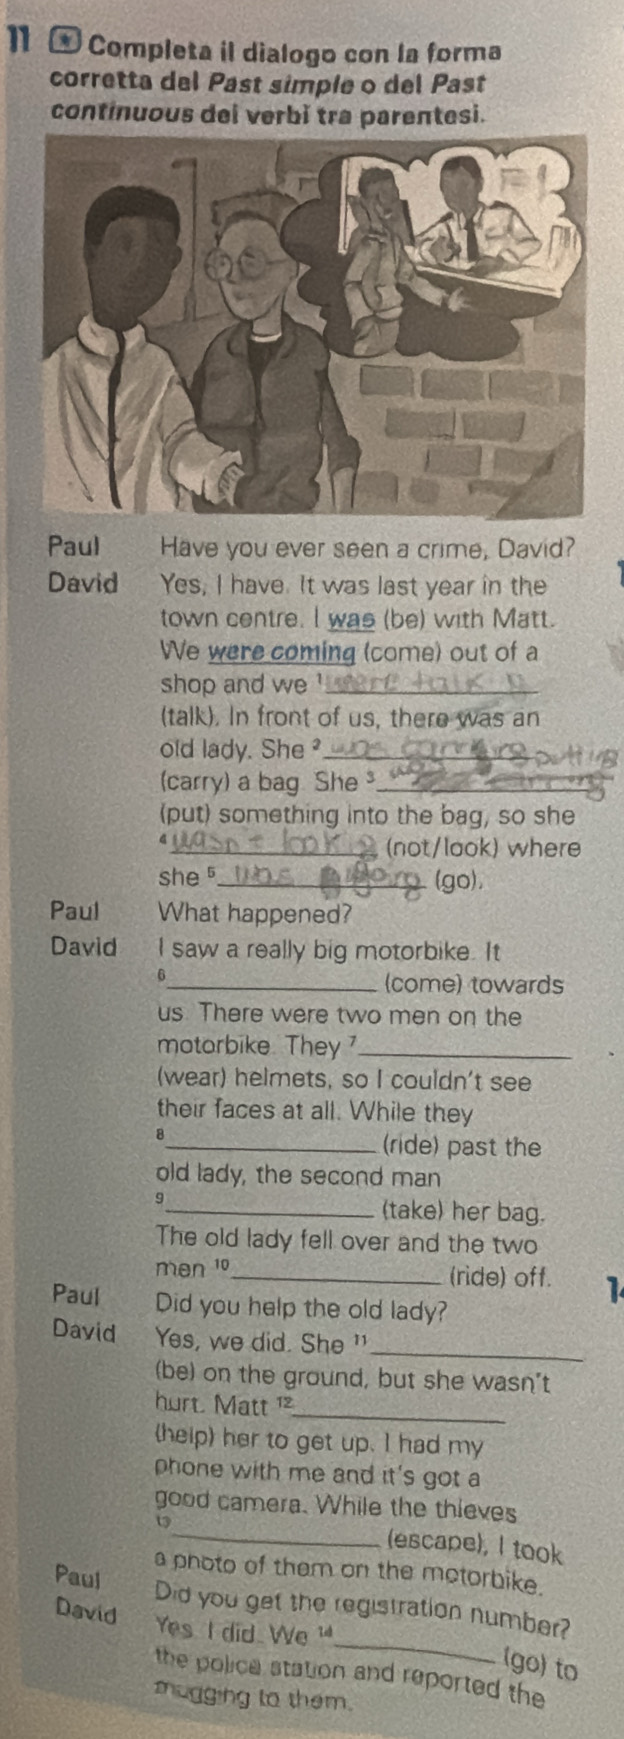 11 Completa il dialogo con la forma
corretta del Past simple o del Past
continuous dei verbi tra parentesi.
Paul Have you ever seen a crime, David?
David Yes, I have. It was last year in the
town centre. I was (be) with Matt.
We were coming (come) out of a
shop and we 1 were talk
(talk). In front of us, there was an
old lady. She 2 was carrying putting
(carry) a bag. She 3 was
(put) something into the bag, so she
4 wasn't (not/look) where
she 5 was going (go).
Paul What happened?
David I saw a really big motorbike. It
6 (come) towards
us. There were two men on the
motorbike. They 7
(wear) helmets, so I couldn't see
their faces at all. While they
8 (ride) past the
old lady, the second man
9 (take) her bag.
The old lady fell over and the two
men 10 (ride) off.
Paul Did you help the old lady?
David Yes, we did. She 11
(be) on the ground, but she wasn't
hurt. Matt 12
(help) her to get up. I had my
phone with me and it's got a
good camera. While the thieves
13 (escape), I took
a photo of them on the motorbike.
Paul Did you get the registration number?
David Yes. I did. We 14 (go) to
the police station and reported the
mugging to them.